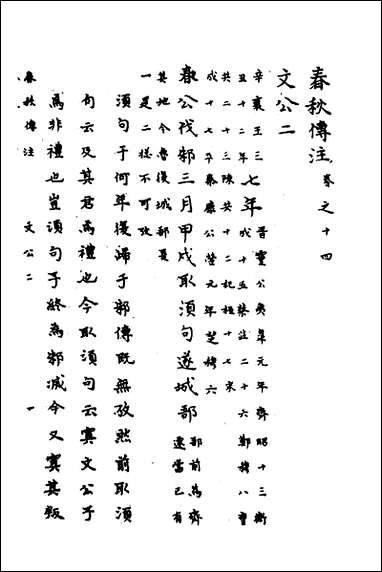 春秋傳注 卷之十四
文公二
辛襄王三七年晉靈公夷皋元年齊昭十三衛
丑十二年 成十五蔡莊二十六鄭穆八曹
共二十三陳共十二杞桓十七宋
成十七卒秦康公罃元年楚穆六
春公伐邾三月甲戌取須句遂城郚郚前為齊
遷當已有
其地今魯復城郚是
一是二疑不可攷
須句于何年復歸于邾傳既無攷然前取須
句云反其君為禮也今取須句云寘文公子
焉非禮也豈須句子終為邾滅今又寘其叛
春秋傳注 文公二 一